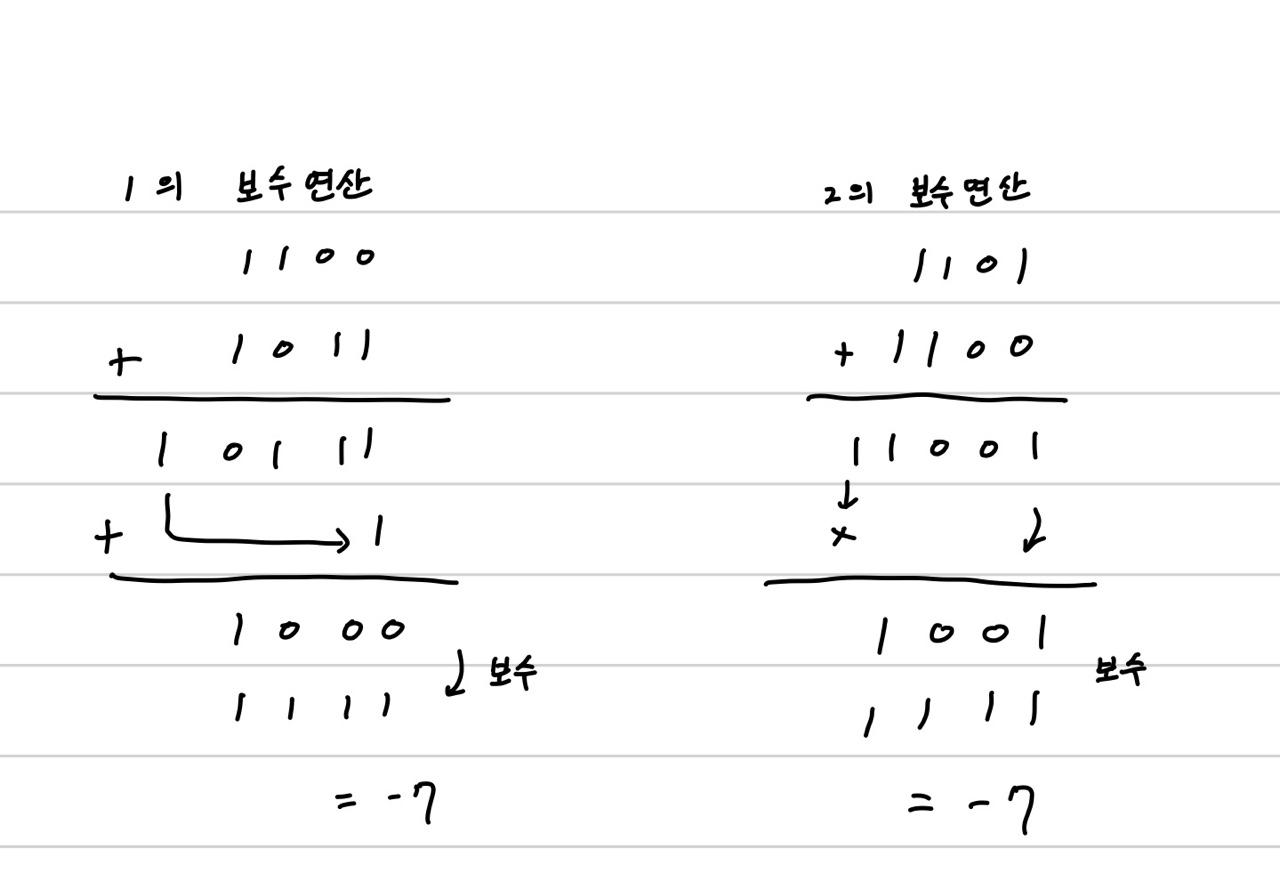 1의 보수연산
1100
+ 1011
1 0111
+ 1
1000
보수
1111
= -7
2의 보수연산
1101
+ 1100
11001
×
1001
보수
1111
= -7